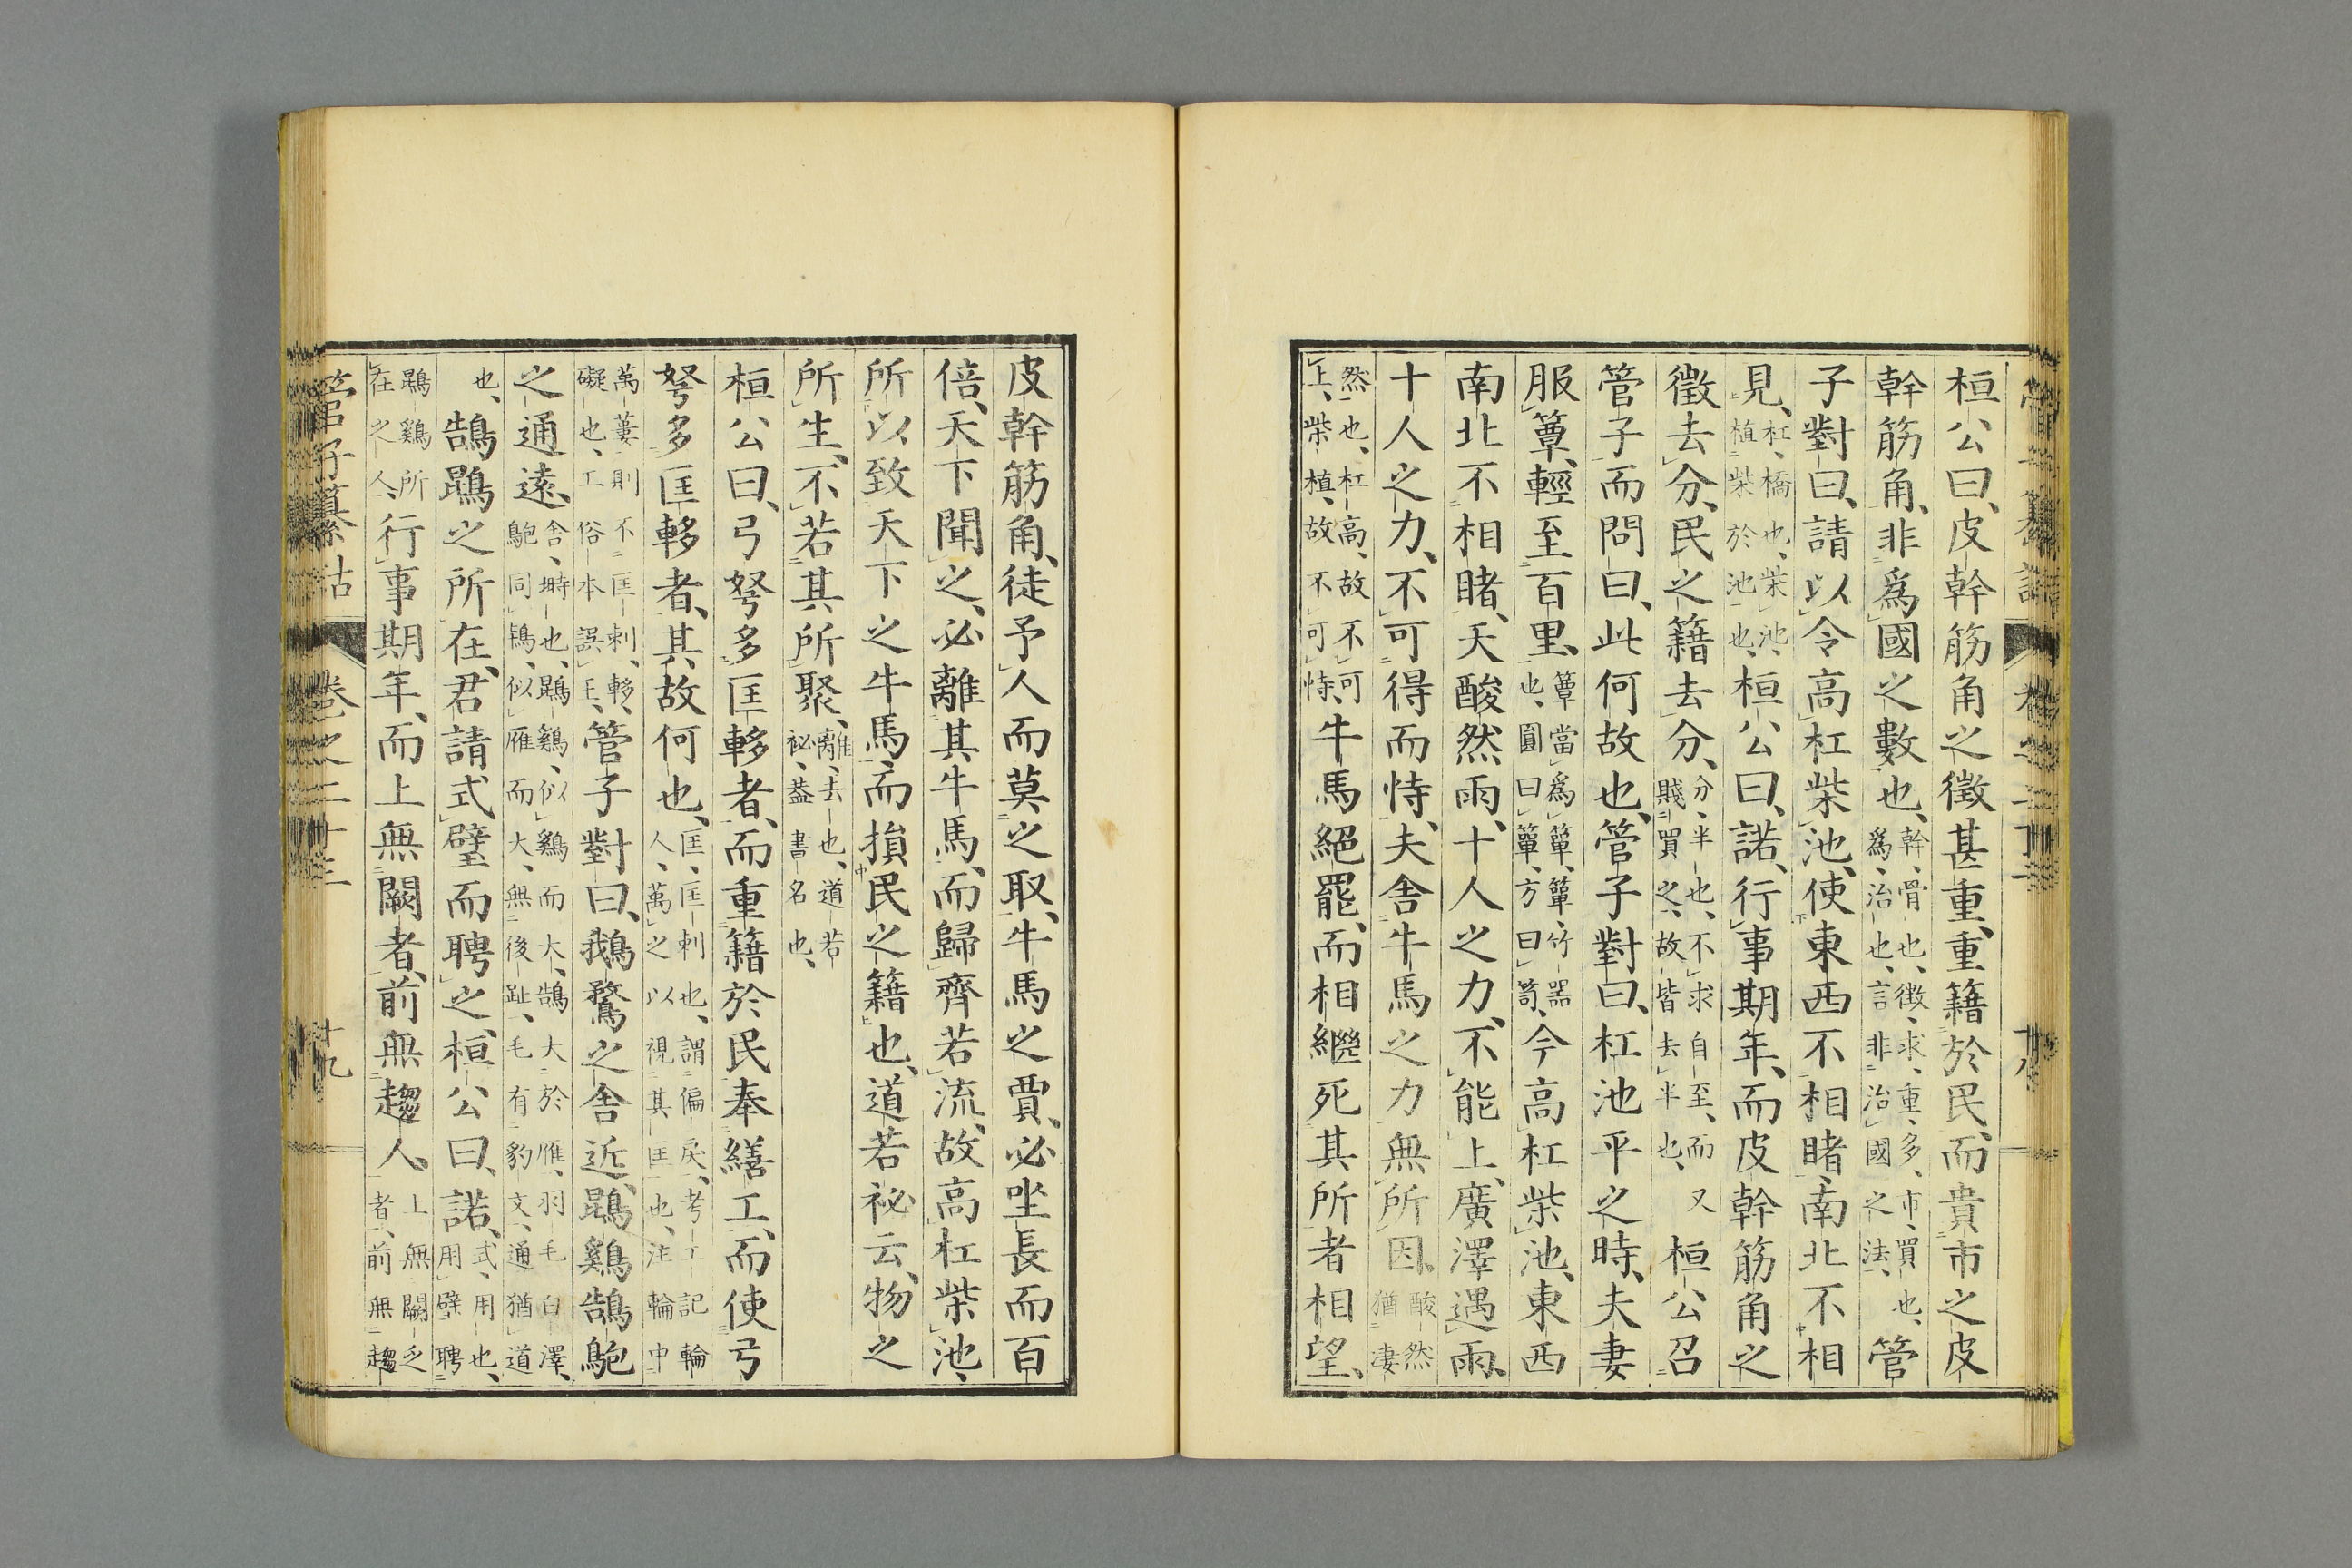 桓公曰、皮幹筋角之徵甚重、重籍於民、而貴市之皮
幹筋角、非爲國之數也、幹、骨也、徵、求、重、多、市、買也、爲、治也、言非治國之法、管
子對曰、請以令高杠柴池、使東西不相睹、南北不相
見、杠、橋也、柴池、植柴於池也、桓公曰、諾、行事期年、而皮幹筋角之
徵去分、民之籍去分、分、半也、不求自至、而又賤買之、故皆去半也、桓公召
管子而問曰、此何故也、管子對曰、杠池平之時、夫妻
服簟、輕至百里、簟當爲簞、簞、竹器也、圓曰簞、方曰笥、今高杠柴池、東西
南北不相睹、天酸然雨、十人之力、不能上、廣澤遇雨、
十人之力、不可得而恃、夫舍牛馬之力無所因、酸然猶凄
然也、杠高、故不可上、柴植、故不可恃、牛馬絕罷、而相繼死其所者相望、
皮幹筋角、徒予人而莫之取、牛馬之賈、必坐長而百
倍、天下聞之、必離其牛馬、而歸齊若流、故高杠柴池、
所以致天下之牛馬、而損民之籍也、道若祕云、物之
所生、不若其所聚、離、去也、道若祕、蓋書名也、
桓公曰、弓弩多匡䡔者、而重籍於民奉繕工、而使弓
弩多匡䡔者、其故何也、匡、匡刺也、謂偏戾、考工記輪人、萬之以視其匡也、注輪中
萬蔞則不匡刺、䡔、礙也、工俗本誤王、管子對曰、鵝鶩之舍近、鶤鷄鵠鴇
之通遠、舍、塒也、鶤鷄、似鷄而大、鵠大於雁、羽毛白澤、鴇同鴇、似雁而大、無後趾、毛有豹文、通猶道
也、鵠鶤之所在、君請式璧而聘之、桓公曰、諾、式、用也、用璧聘
鶤鷄所在之人、行事期年、而上無闕者、前無趨人、上無闕乏者、前無趨
管子纂詁 卷之二十三 十九